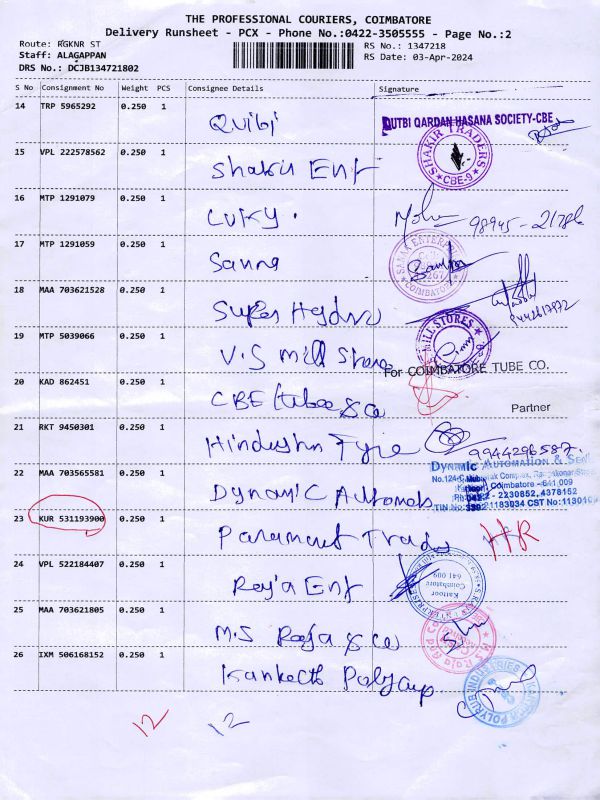 THE PROFESSIONAL COURIERS, COIMBATORE
Delivery Runsheet - PCX - Phone No.:0422-3505555 - Page No.:2
Route: RGKNR ST
Staff: ALAGAPPAN
DRS No.: DCJB134721802
RS No.: 1347218
RS Date: 03-Apr-2024
S No Consignment No Weight PCS Consignee Details Signature
14 TRP 5965292 0.250 1 Quibi
QUTBI QARDAN HASANA SOCIETY-CBE
15 VPL 222578562 0.250 1 Shakir Ent
SHAKIR TRADERS
CBE-9
16 MTP 1291079 0.250 1 Lucky.
98945-21786
17 MTP 1291059 0.250 1 Sanna
COIMBATORE
18 MAA 703621528 0.250 1 Super Hydro
9442617972
19 MTP 5039066 0.250 1 V.S Mill Store
MILL STORES
For COIMBATORE TUBE CO.
20 KAD 862451 0.250 1 CBE Tube & Co
Partner
21 RKT 9450301 0.250 1 Hindusthn Tyre
9944296587.
22 MAA 703565581 0.250 1 Dynamic Automats
DYNAMIC AUTOMATION &
Coimbatore - 641 009
2230852, 4378152
23 KUR 531193900 0.250 1 Paramount Trads
HR
24 VPL 522184407 0.250 1 Raja Ent
Kattoor
Coimbatore
641 009
25 MAA 703621805 0.250 1 M.S Raja & Co
26 IXM 506168152 0.250 1 Kanketh Polycup
12 12